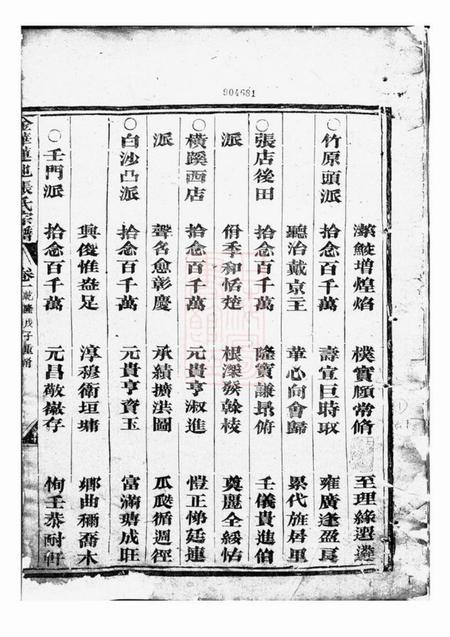 904681
潔皎增煌焰 樸實願常脩 至理緣選
○竹原頭派 拾念百千萬 壽宣巨時取 雍廣逢盈
聽治戴京王 華心向會歸 累代旌
○張店後田 拾念百千萬 隆實謙昴俯 壬儀貴進伯
派 份季和恬楚 根深發翰枝 奠麗全綏怙
○橫蹊西店 拾念百千萬 元貴亨淑進 愷正悌廷連
派 聲名愈彰慶 承績擴洪圖 瓜瓞循週徑
○白沙凸派 拾念百千萬 元貴亨資玉 富滿堂成旺
興俊惟益足 淳穆衛垣墉 鄉曲稱喬木
○壬門派 拾念百千萬 元昌敬徽存 恂壬恭耐軒
張氏宗譜 卷一 乾隆戊子重脩